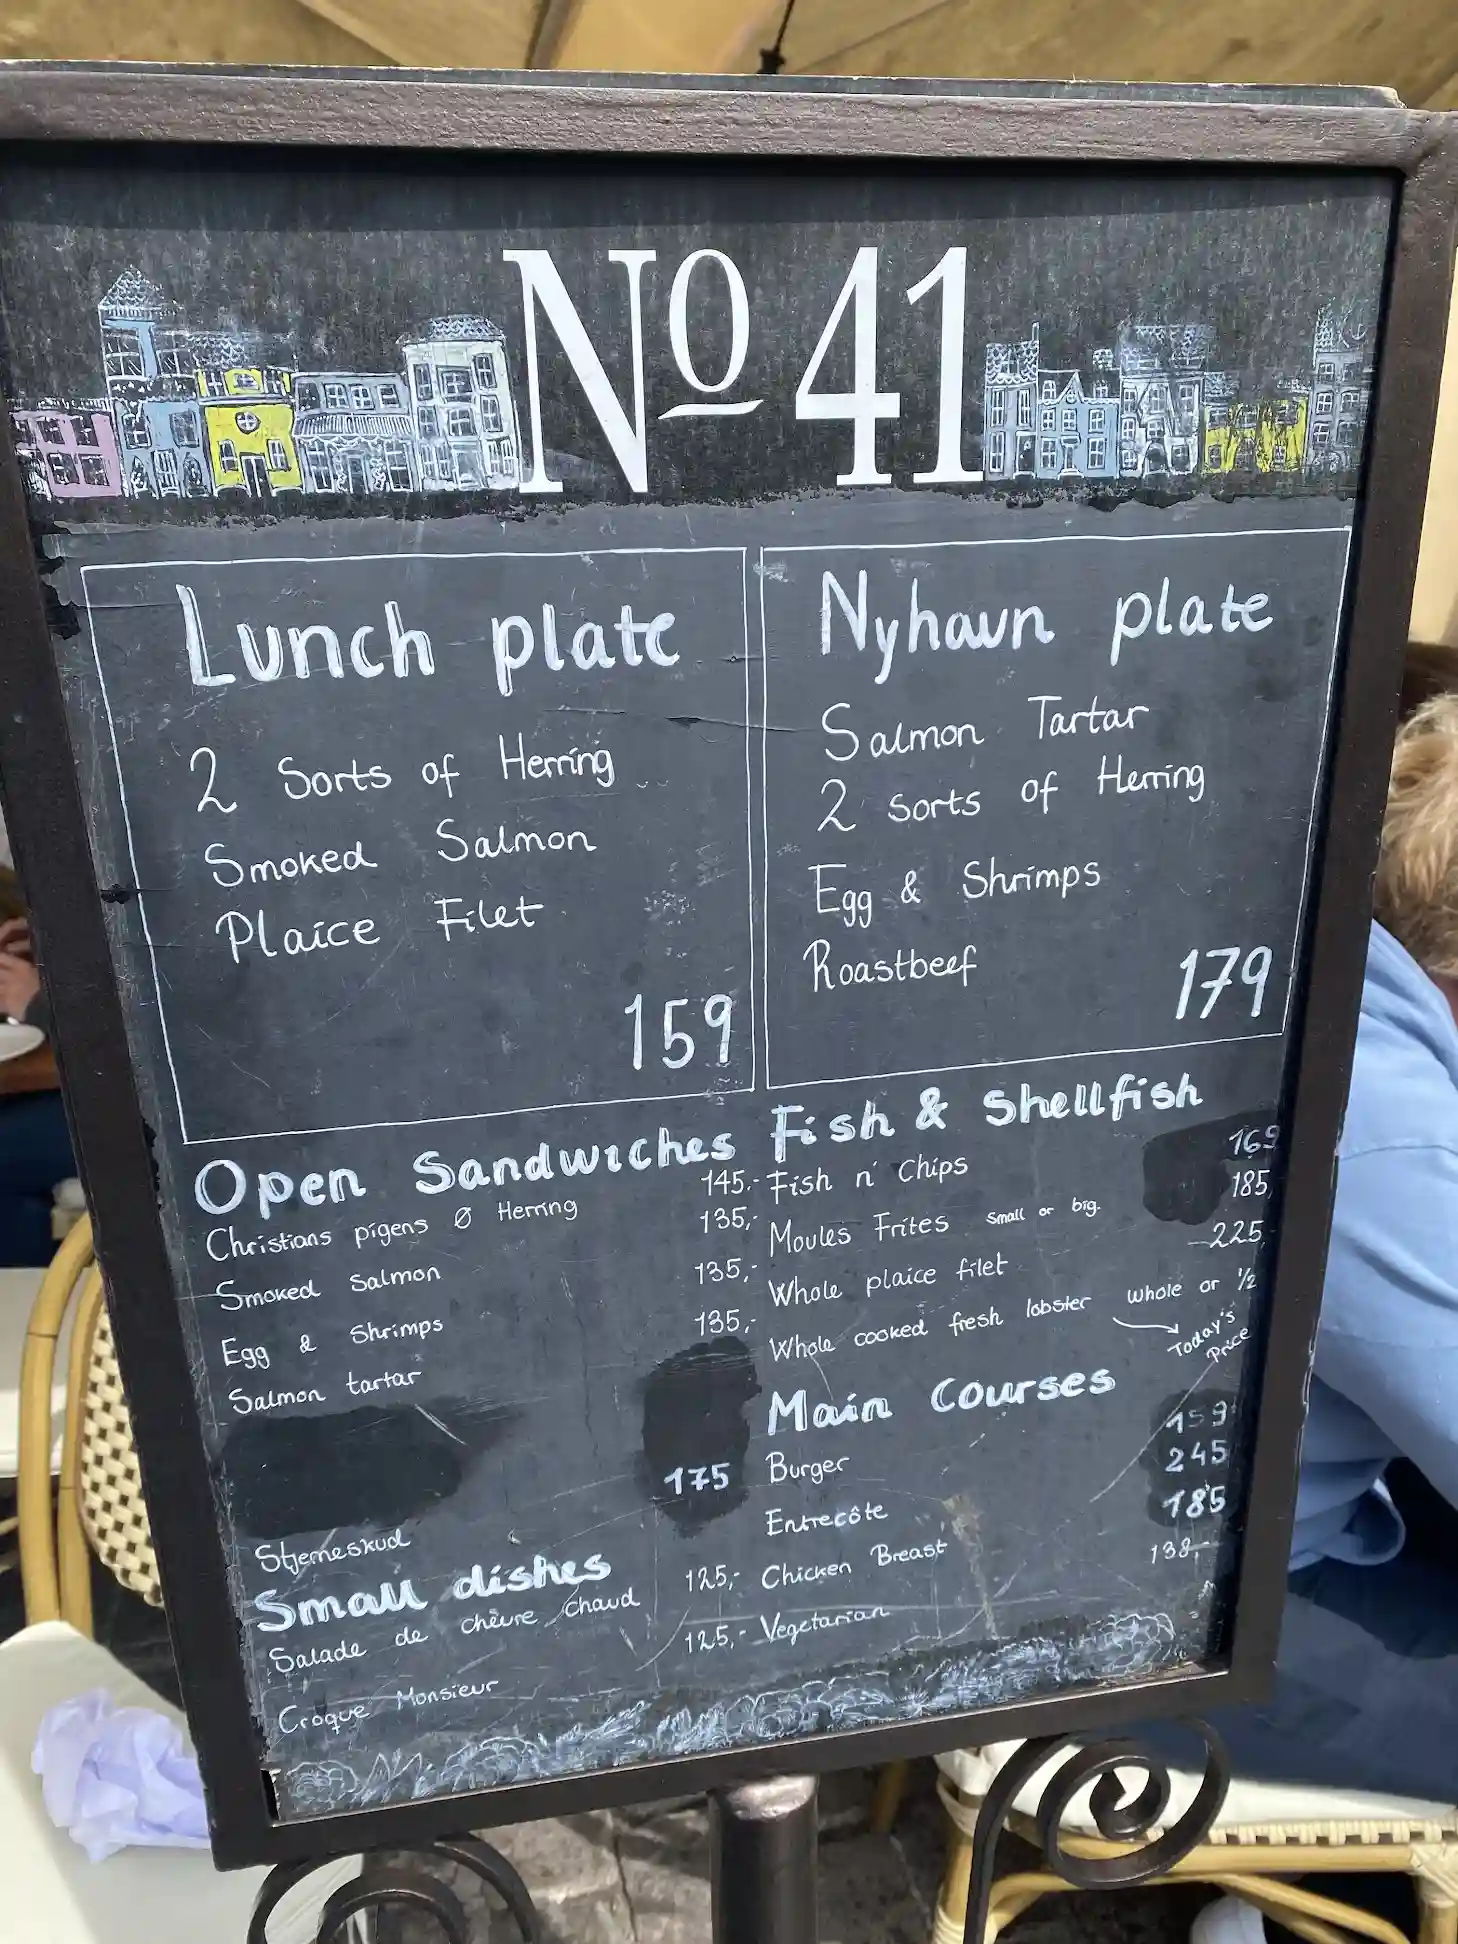 Nº 41
Lunch plate
2 Sorts of Herring
Smoked Salmon
Plaice Filet
159
Nyhavn plate
Salmon Tartar
2 sorts of Herring
Egg & Shrimps
Roastbeef
179
Open Sandwiches
Christians pigens Ø Herring 145,-
Smoked Salmon 135,-
Egg & Shrimps 135,-
Salmon tartar 135,-
Stjerneskud 175
Small dishes
Salade de chèvre chaud 125,-
Croque Monsieur 125,-
Fish & Shellfish
Fish n' Chips 169
Moules Frites small or big. 185,
Whole plaice filet 225,-
Whole cooked fresh lobster whole or 1/2
Today's Price
Main Courses
Burger 159
Entrecôte 245
Chicken Breast 185
Vegetarian 138,-